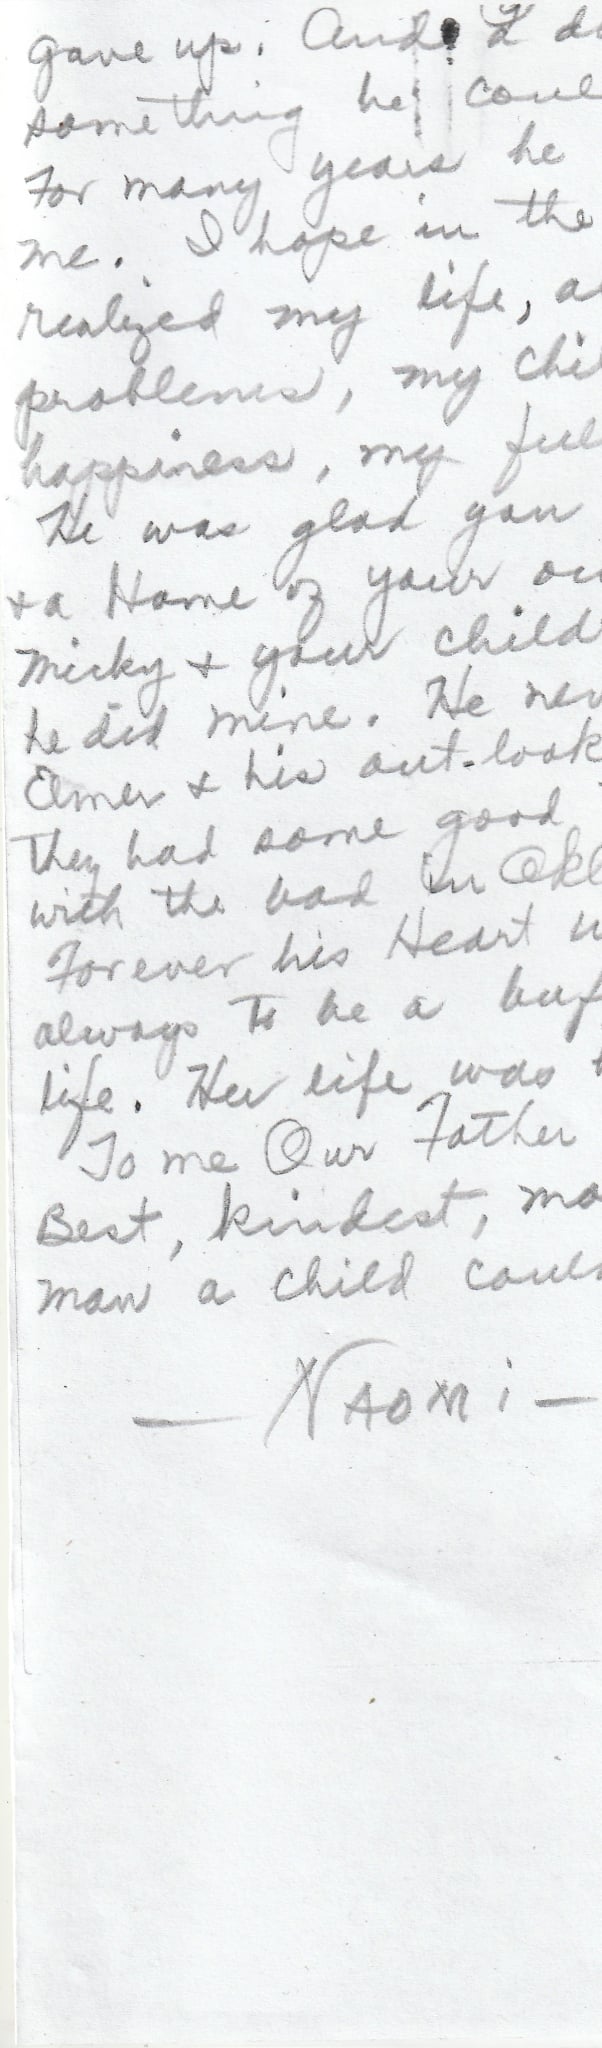 gave up. And I di
something he coul
For many years he
me. I hope in the
realized my life, a
problems, my chil
happiness, my ful
He was glad you
+ a Home of your ow
Micky + your child
he did mine. He nev
Elmer + his out-look
They had some good
with the bad in Okl
Forever his Heart w
always to be a buf
life. Her life was t
To me Our Father
Best, kindest, mo
man a child coul
— NAOMi —